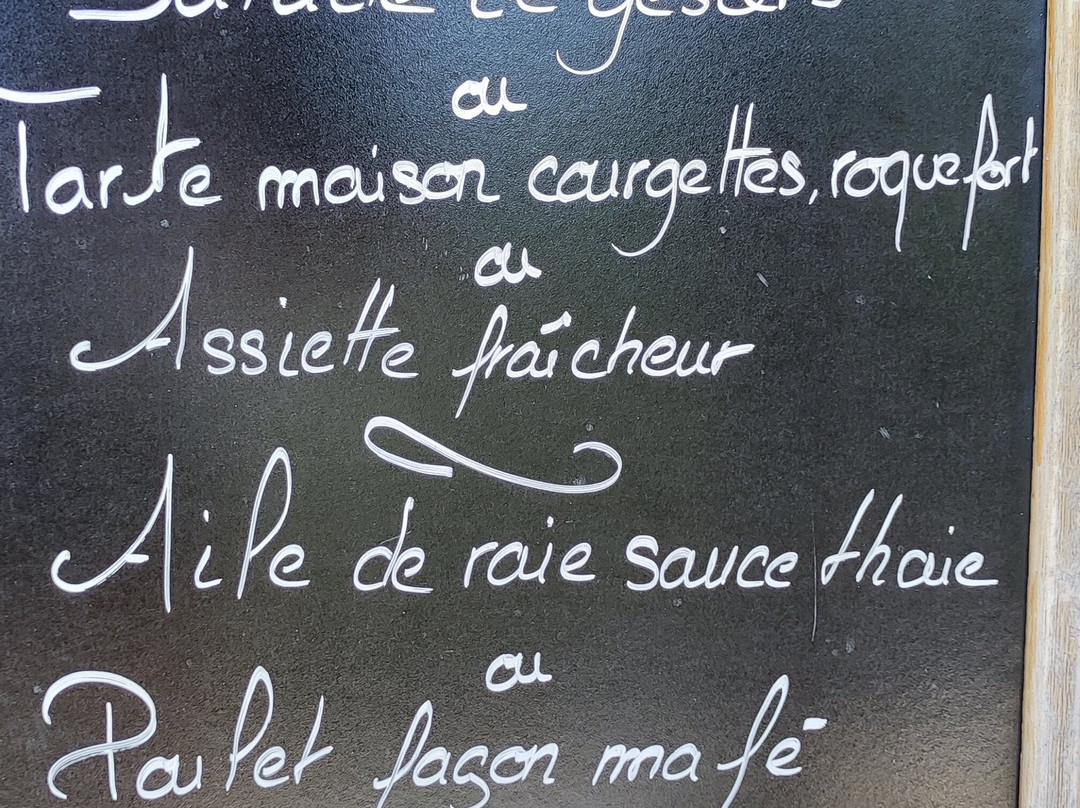 Salade de gésiers
ou
Tarte maison courgettes, roquefort
ou
Assiette fraîcheur
Aile de raie sauce thaie
ou
Poulet façon mafé